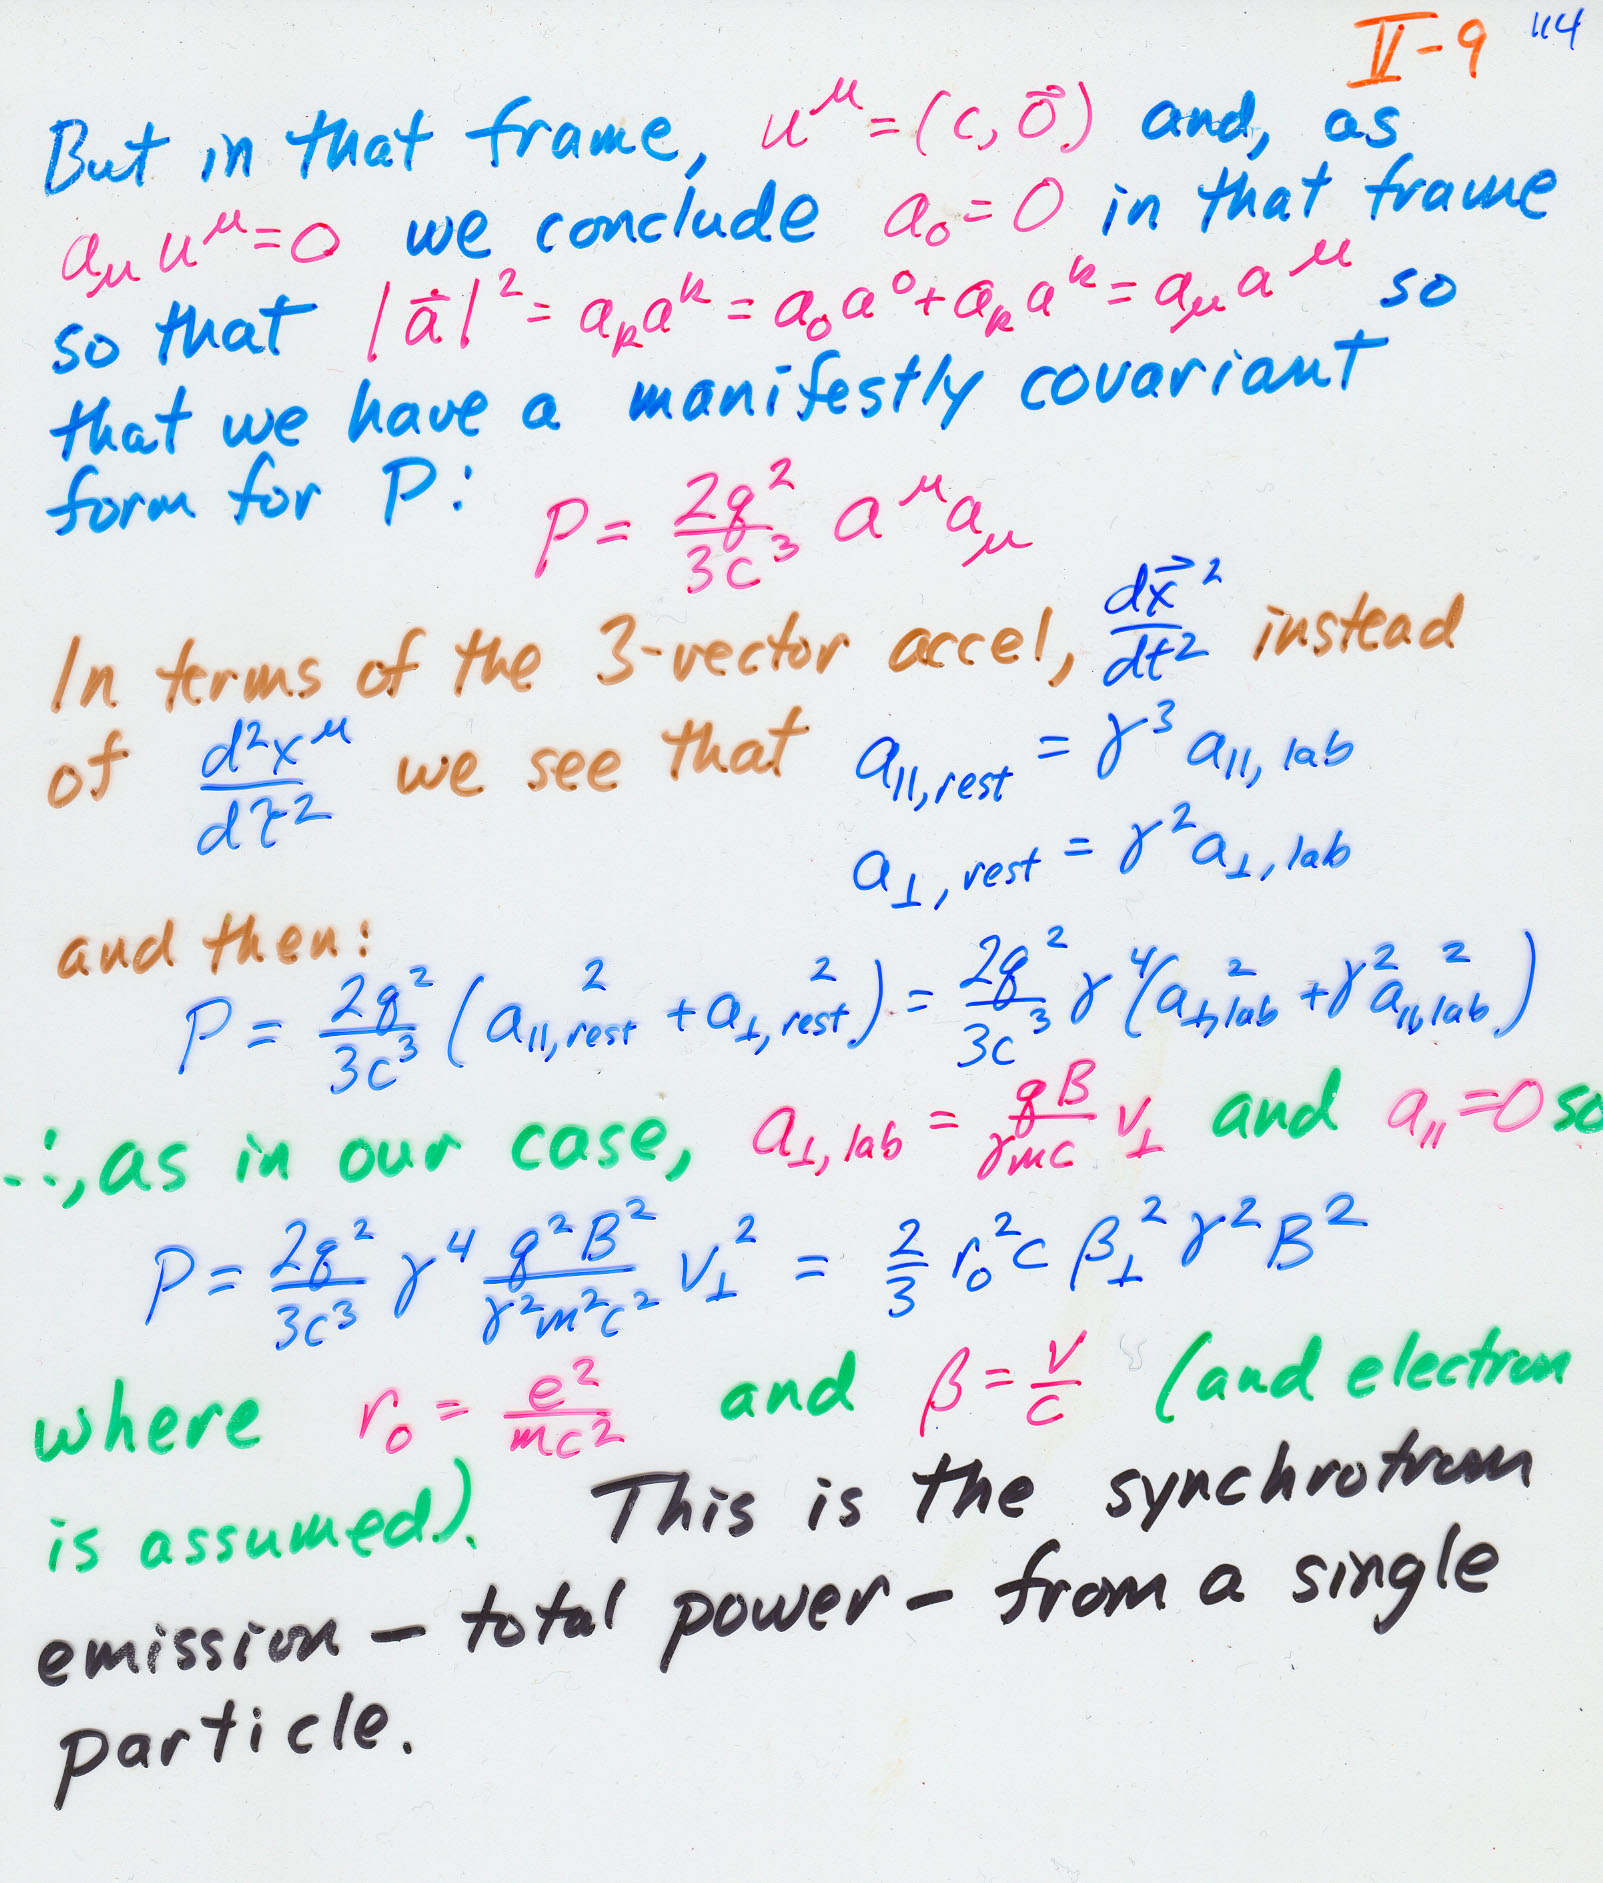 V-9 114
But in that frame, u^μ = (c, 0⃗) and, as
a_μ u^μ = 0 we conclude a_0 = 0 in that frame
so that |a⃗|^2 = a_k a^k = a_0 a^0 + a_k a^k = a_μ a^μ so
that we have a manifestly covariant
form for P:
P = \frac{2q^2}{3c^3} a^μ a_μ
In terms of the 3-vector accel, \frac{dx⃗^2}{dt^2} instead
of \frac{d^2x^μ}{dτ^2} we see that a_{||,rest} = γ^3 a_{||,lab}
a_{⊥,rest} = γ^2 a_{⊥,lab}
and then:
P = \frac{2q^2}{3c^3} (a_{||,rest}^2 + a_{⊥,rest}^2) = \frac{2q^2}{3c^3} γ^4 (a_{⊥,lab}^2 + γ^2 a_{||,lab}^2)
∴, as in our case, a_{⊥,lab} = \frac{qB}{γmc} v_⊥ and a_{||} = 0 so
P = \frac{2q^2}{3c^3} γ^4 \frac{q^2B^2}{γ^2m^2c^2} v_⊥^2 = \frac{2}{3} r_0^2 c β_⊥^2 γ^2 B^2
where r_0 = \frac{e^2}{mc^2} and β = \frac{v}{c} (and electron
is assumed). This is the synchrotron
emission – total power – from a single
particle.